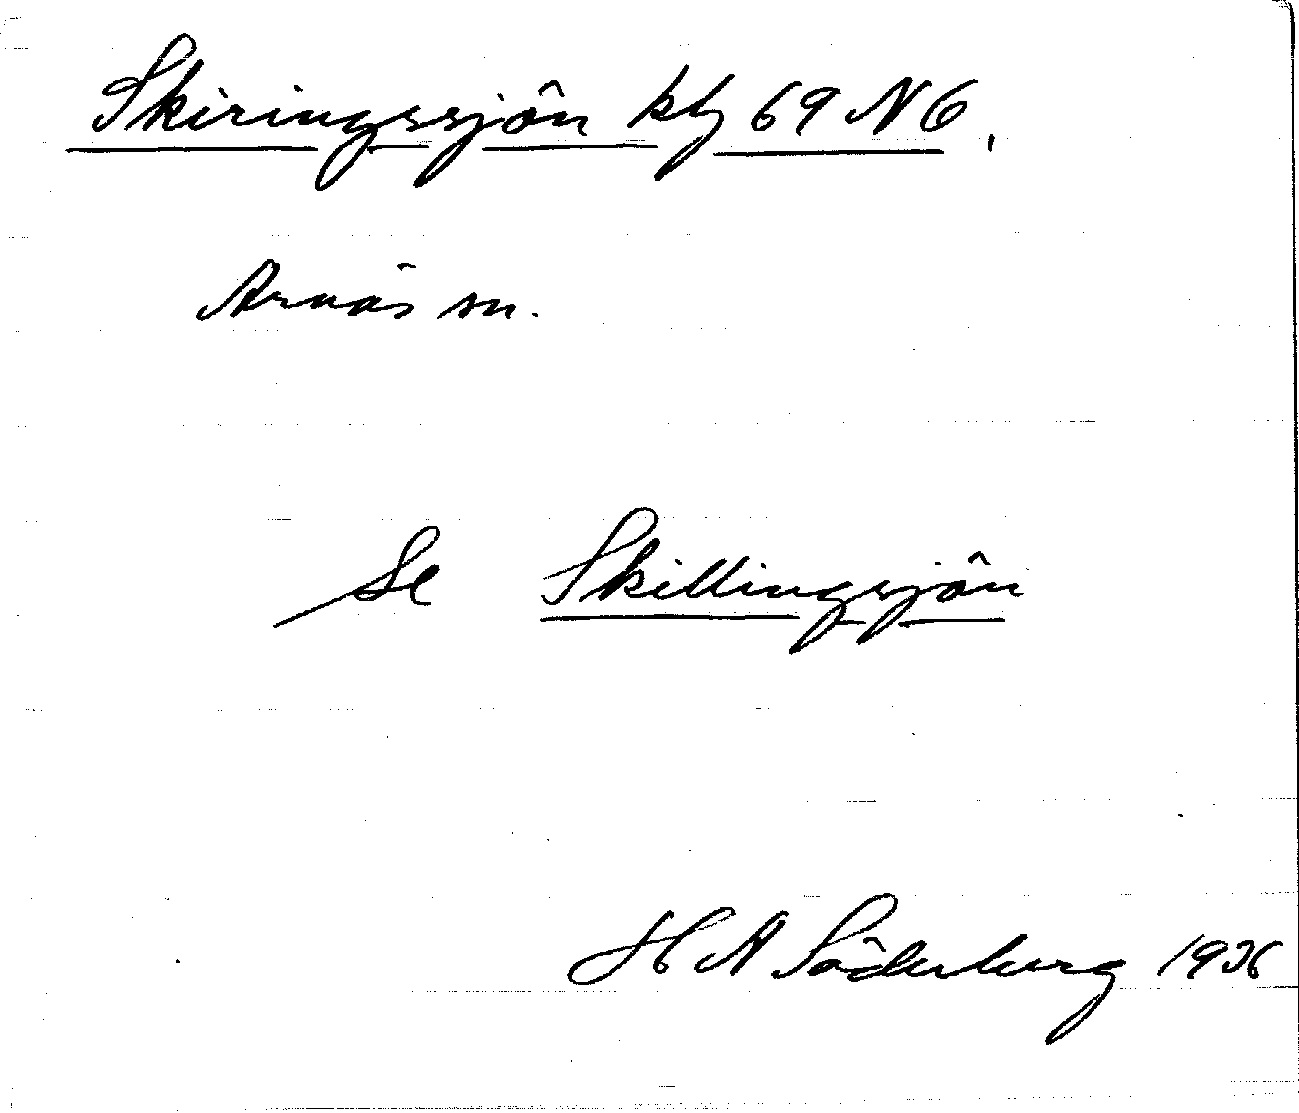 Skiringssjön kbl 69 N6.
Arnäs sn.
Se Skillingsjön
H A Söderberg 1936